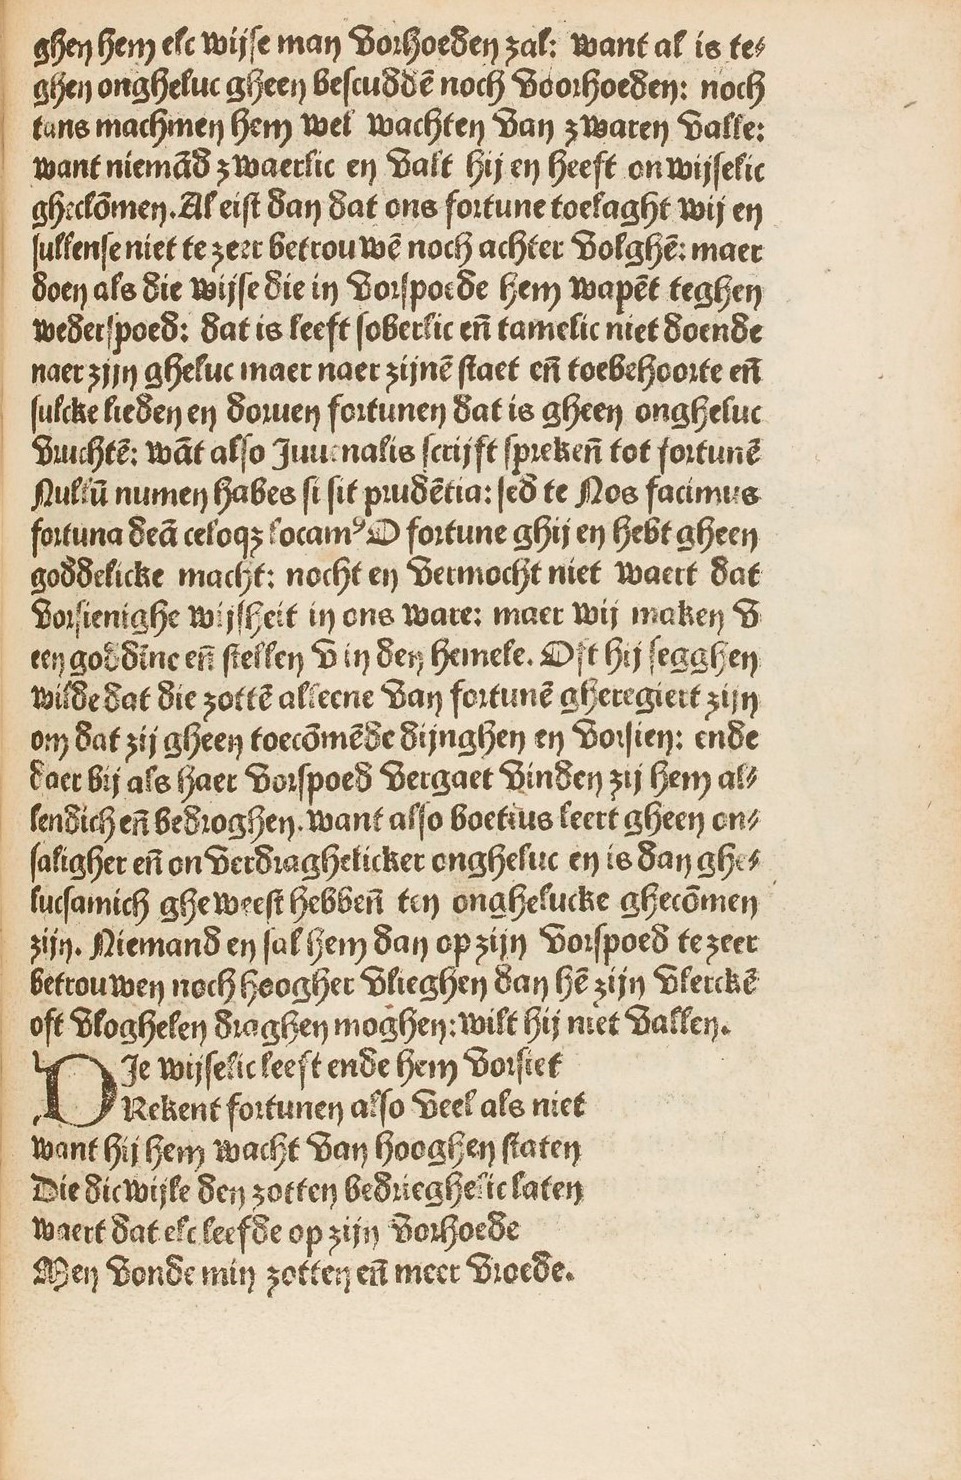 ghen hem elc wijse man vorhoeden zal: want al is te⸗
ghen ongheluc gheen bescuddē noch voorhoeden: noch
tans machmen hem wel wachten van zwaren valle:
want niemād zwaerlic en valt hij en heeft onwijselic
gheclōmen. Al eist dan dat ons fortune toelaght wij en
sullense niet te zeer betrouwē noch achter volghē: maer
doen als die wijse die in vorspoede hem wapēt teghen
wederspoed: dat is leeft soberlic eñ tamelic niet doende
naer zijn gheluc maer naer zijnē staet eñ toebehoorte eñ
sulcke lieden en doruen fortunen dat is gheen ongheluc
vruchtē: wāt also Juuenalis scrijft sprekeñ tot fortunē
Nullū numen habes si sit prudētia: sed te Nos facimus
fortuna deā celoqꝫ locamꝰ O fortune ghij en hebt gheen
goddelicke macht: nocht en vermocht niet waert dat
vorsienighe wijsheit in ons ware: maer wij maken v
een goddīne eñ stellen v in den hemele. Oft hij segghen
wilde dat die zottē alleene van fortunē gheregiert zijn
om dat zij gheen toecōmēde dijnghen en vorsien: ende
daer bij als haer vorspoed vergaet vinden zij hem al⸗
lendich eñ bedroghen. want also boetius leert gheen on⸗
saligher eñ onverdraghelicker ongheluc en is dan ghe⸗
lucsamich gheweest hebbeñ ten onghelucke ghecōmen
zijn. Niemand en sal hem dan op zijn vorspoed te zeer
betrouwen noch hoogher vlieghen dan hē zijn vlerckē
oft vloghelen draghen moghen: wilt hij niet vallen.
DJe wijselic leeft ende hem vorsiet
Rekent fortunen also veel als niet
want hij hem wacht van hooghen staten
Die dicwijle den zotten bedrieghelic laten
waert dat elc leefde op zijn vorhoede
Men vonde min zotten eñ meer vroede.